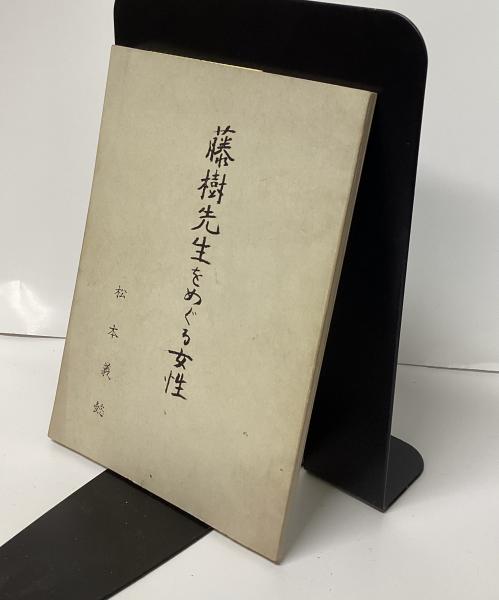 藤樹先生をめぐる女性
松本義懿